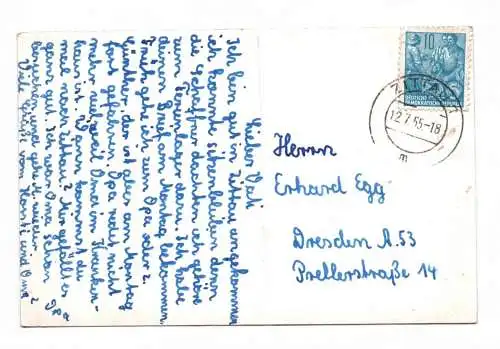 Lieber Vati
Ich bin gut in Zittau angekommen
ich konnte sitzenbleiben denn
die Schaffner dachten ich gehöre
zum Ferienlager dazu. Ich habe
deinen Brief am Montag bekommen.
Früh gehe ich zum Opa oder z.
Günther der ist aber am Montag
fort gefahren. Opa redet nicht
mehr viel weil Oma im Kranken-
haus ist. Wann kommst du
mal nach Zittau? Mir gefällt es
ganz gut. Ich war Oma schon
besuchen und gehe
Viele Grüße vom Horst und Oma
Opa
10
DEUTSCHE
DEMOKRATISCHE REPUBLIK
ZITTAU
12.7.55-18
m
Herrn
Erhard Egg
Dresden A.53
Prellerstraße 14